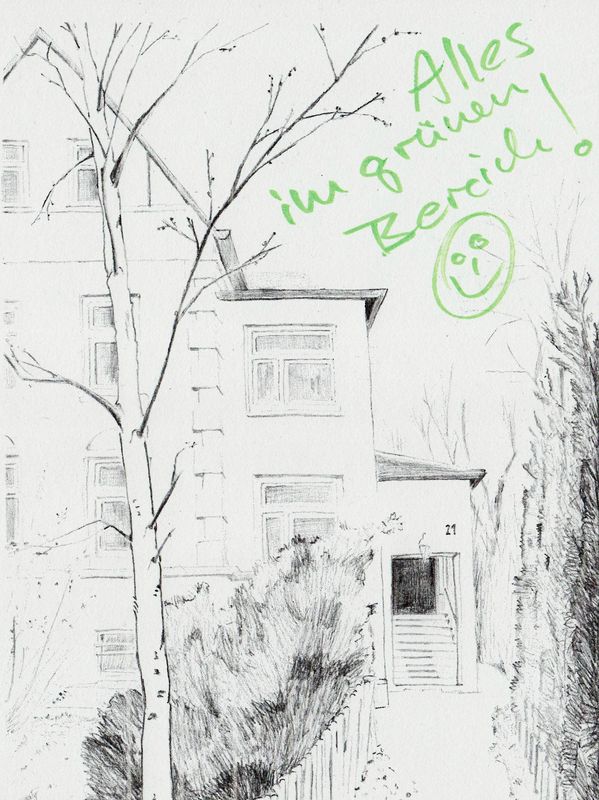 Alles
im grünen
Bereich!
21